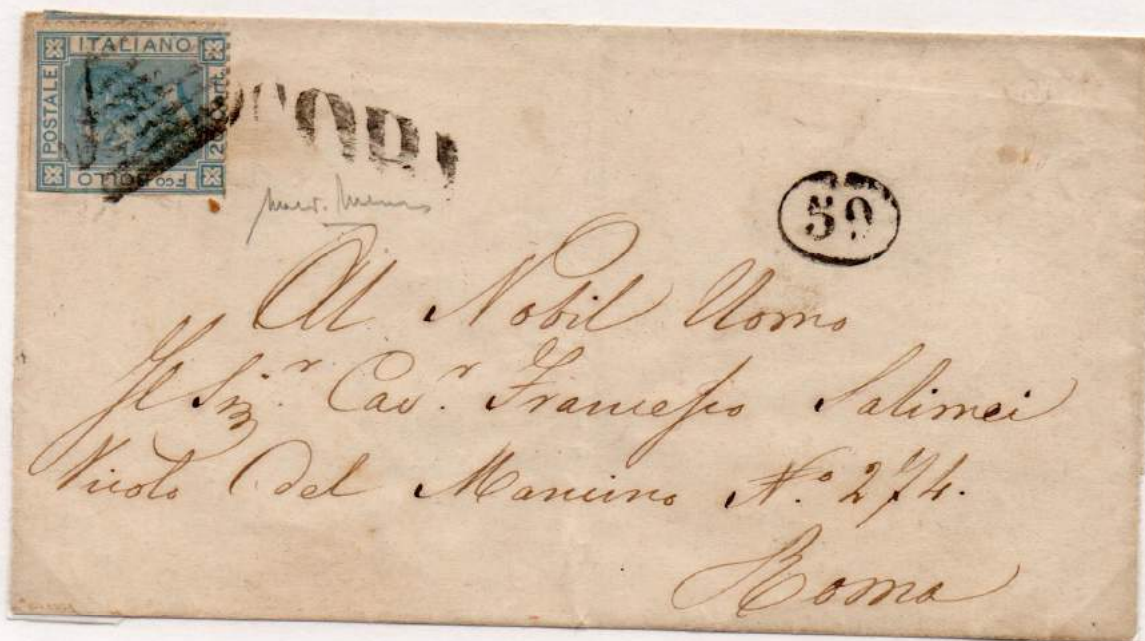 ITALIANO
POSTALE
20 Cent.
Fco BOLLO
59
Al Nobil Uomo
Il Sig.r Cav.r Francesco Salimei
Vicolo del Mancino N.o 274.
Roma